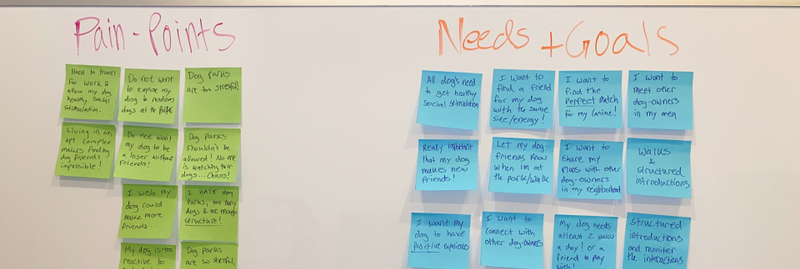 Pain-Points
Needs + Goals
Hard to travel
for work &
allow my dog
healthy social
stimulation.
Do not want
to expose my dog
to random
dogs at the park
Dog parks
are too stressful
Living in an
apt complex
makes finding
dog friends
impossible!
Do not want
my dog to be
a loser without
friends!
Dog Parks
shouldn't be
allowed! No one
is watching their
dogs...chaos!
I wish my
dog could
make more
friends...
I HATE dog
Parks, too many
dogs & not enough
structure!
My dog is too
reactive to
Dog parks
are so stressful
All dog's need
to get healthy
Social Stimulation
I want to
find a friend
for my dog
with the same
size/energy!
I want to
find the
Perfect Match
for my canine!
I want to
meet other
dog-owners
in my area
Really important
that my dog
makes new
friends!
Let my dog
friends know
when im at
the park/walk
I want to
Share my
plans with other
dog-owners in
my neighborhood
Walks
&
structured
introductions
I want my
dog to have
positive experiences
I want to
connect with
other dog-owners
My dog needs
atleast 2 walks
a day! or a
friend to play
with!
Structured
introductions
and monitor
the interactions